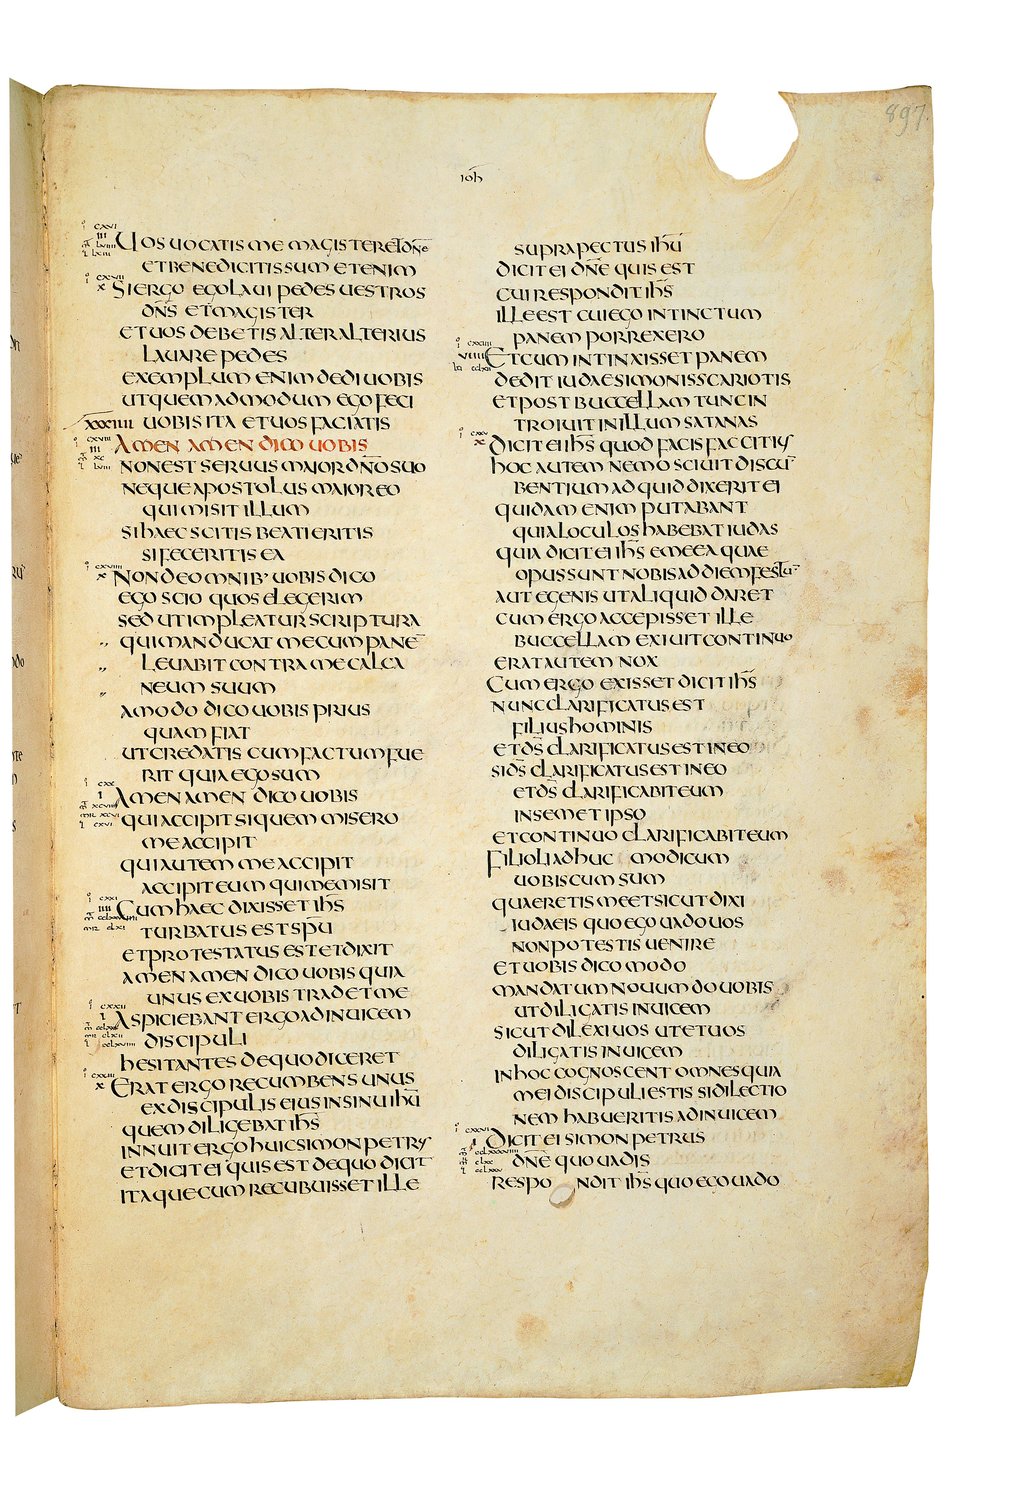 897.
ioh
UOS UOCATIS ME MAGISTER ET DNE
ET BENE DICITIS SUM ETENIM
SI ERGO EGO LAUI PEDES UESTROS
DNS ET MAGISTER
ET UOS DEBETIS ALTER ALTERIUS
LAUARE PEDES
EXEMPLUM ENIM DEDI UOBIS
UT QUEMADMODUM EGO FECI
XXXIIII UOBIS ITA ET UOS FACIATIS
AMEN AMEN DICO UOBIS
NON EST SERUUS MAIOR DNO SUO
NEQUE APOSTOLUS MAIOR EO
QUI MISIT ILLUM
SI HAEC SCITIS BEATI ERITIS
SI FECERITIS EA
NON DE OMNIB' UOBIS DICO
EGO SCIO QUOS ELEGERIM
SED UT IMPLEATUR SCRIPTURA
,, QUI MANDUCAT MECUM PANE
,, LEUABIT CONTRA ME CALCA
,, NEUM SUUM
AMODO DICO UOBIS PRIUS
QUAM FIAT
UT CREDATIS CUM FACTUM FUE
RIT QUIA EGO SUM
AMEN AMEN DICO UOBIS
QUI ACCIPIT SI QUEM MISERO
ME ACCIPIT
QUI AUTEM ME ACCIPIT
ACCIPIT EUM QUI ME MISIT
CUM HAEC DIXISSET IHS
TURBATUS EST SPU
ET PROTESTATUS EST ET DIXIT
AMEN AMEN DICO UOBIS QUIA
UNUS EX UOBIS TRADET ME
ASPICIEBANT ERGO AD INUICEM
DISCIPULI
HESITANTES DE QUO DICERET
ERAT ERGO RECUMBENS UNUS
EX DISCIPULIS EIUS IN SINU IHU
QUEM DILIGEBAT IHS
INNUIT ERGO HUIC SIMON PETRUS
ET DICIT EI QUIS EST DE QUO DICIT
ITAQUE CUM RECUBUISSET ILLE
SUPRA PECTUS IHU
DICIT EI DNE QUIS EST
CUI RESPONDIT IHS
ILLE EST CUI EGO INTINCTUM
PANEM PORREXERO
ET CUM INTINXISSET PANEM
DEDIT IUDAE SIMONIS SCARIOTIS
ET POST BUCCELLAM TUNC IN
TROIUIT IN ILLUM SATANAS
DICIT EI IHS QUOD FACIS FAC CITIUS
HOC AUTEM NEMO SCIUIT DISCU
BENTIUM AD QUID DIXERIT EI
QUIDAM ENIM PUTABANT
QUIA LOCULOS HABEBAT IUDAS
QUIA DICIT EI IHS EME EA QUAE
OPUS SUNT NOBIS AD DIEM FESTU
AUT EGENIS UT ALIQUID DARET
CUM ERGO ACCEPISSET ILLE
BUCCELLAM EXIUIT CONTINUO
ERAT AUTEM NOX
CUM ERGO EXISSET DICIT IHS
NUNC CLARIFICATUS EST
FILIUS HOMINIS
ET DS CLARIFICATUS EST IN EO
SI DS CLARIFICATUS EST IN EO
ET DS CLARIFICABIT EUM
IN SEMET IPSO
ET CONTINUO CLARIFICABIT EUM
FILIOLI ADHUC MODICUM
UOBISCUM SUM
QUAERETIS ME ET SICUT DIXI
IUDAEIS QUO EGO UADO UOS
NON POTESTIS UENIRE
ET UOBIS DICO MODO
MANDATUM NOUUM DO UOBIS
UT DILIGATIS INUICEM
SICUT DILEXI UOS UT ET UOS
DILIGATIS INUICEM
IN HOC COGNOSCENT OMNES QUIA
MEI DISCIPULI ESTIS SI DILECTIO
NEM HABUERITIS AD INUICEM
DICIT EI SIMON PETRUS
DNE QUO UADIS
RESPONDIT IHS QUO EGO UADO